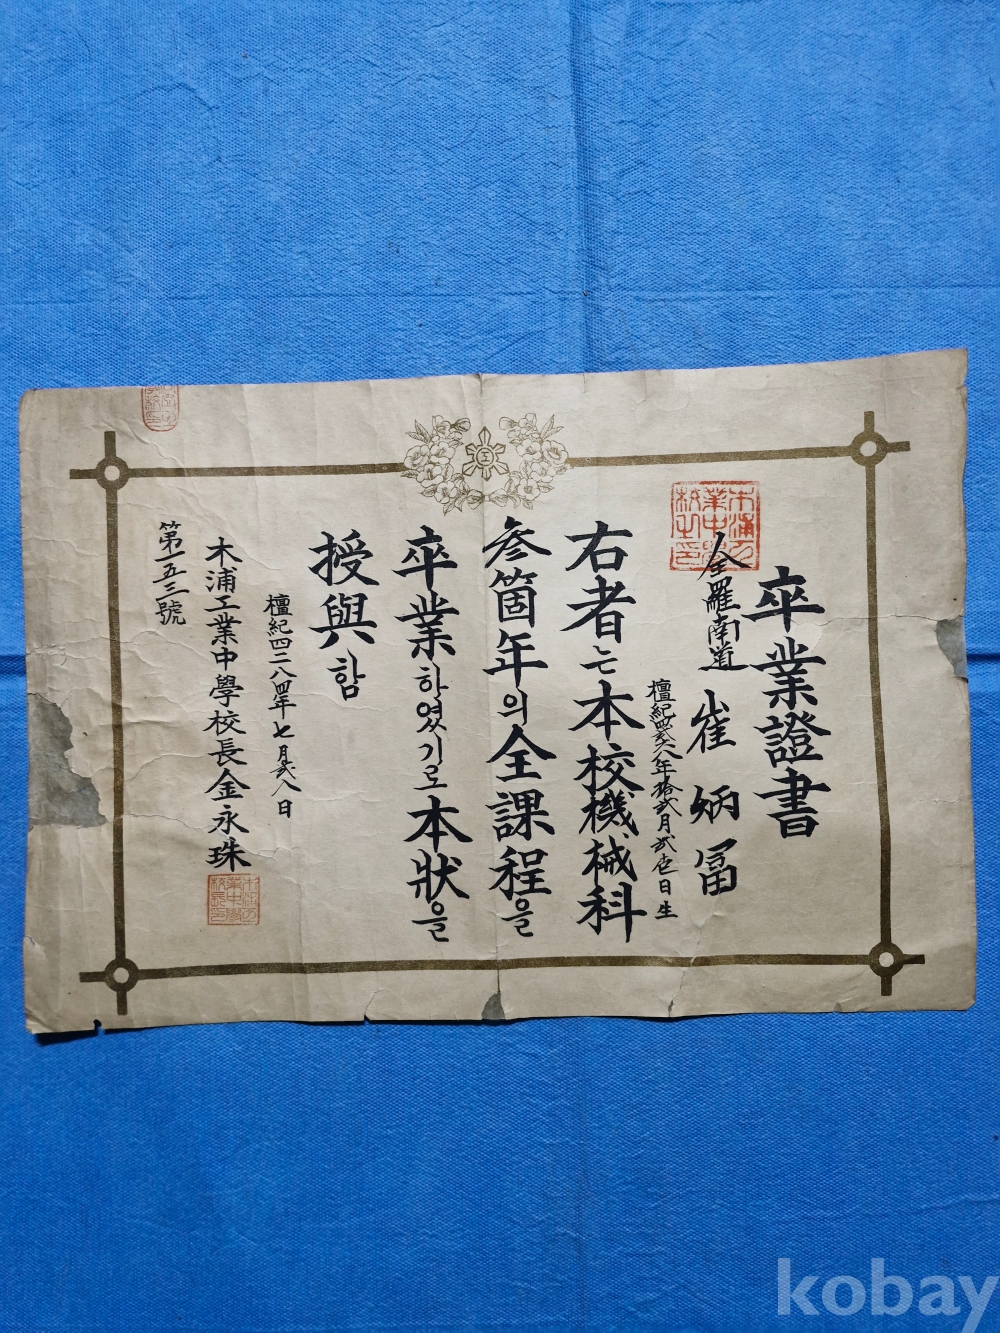 卒業證書
全羅南道 崔炳冨
檀紀四貳六八年拾貳月貳壱日生
右者는本校機械科
參箇年의全課程을
卒業하였기로本狀을
授與함
檀紀四二八四年七月貳八日
木浦工業中學校長金永珠
第一五三號
木浦工
業中學
校之印
木浦工
業中學
校長印
工
kobay